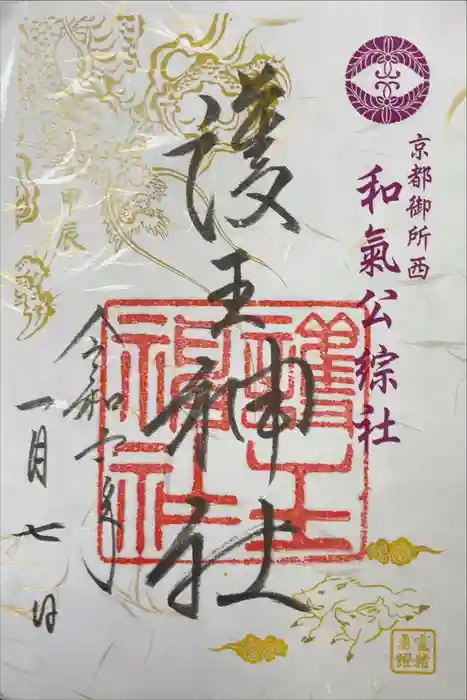 京都御所西
和氣公綜社
護王神社
甲辰
令和六年
一月七日
護王
神社